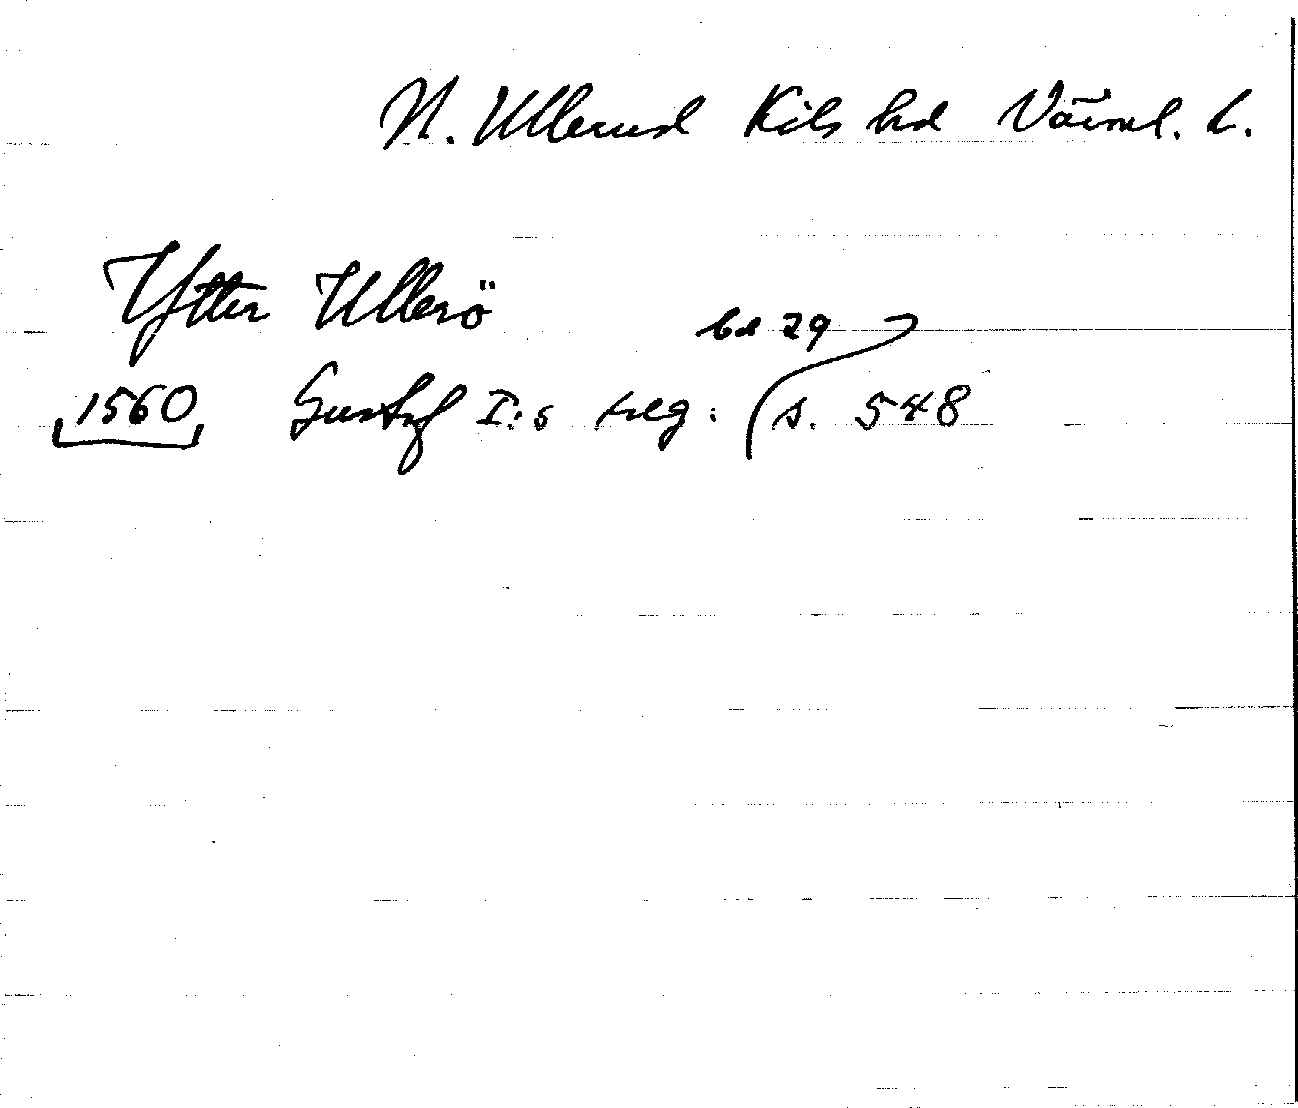 N. Ullerud Kils hd Värml. l.
Ytter Ullerö
bd 29
1560 Gustaf I:s reg. s. 548